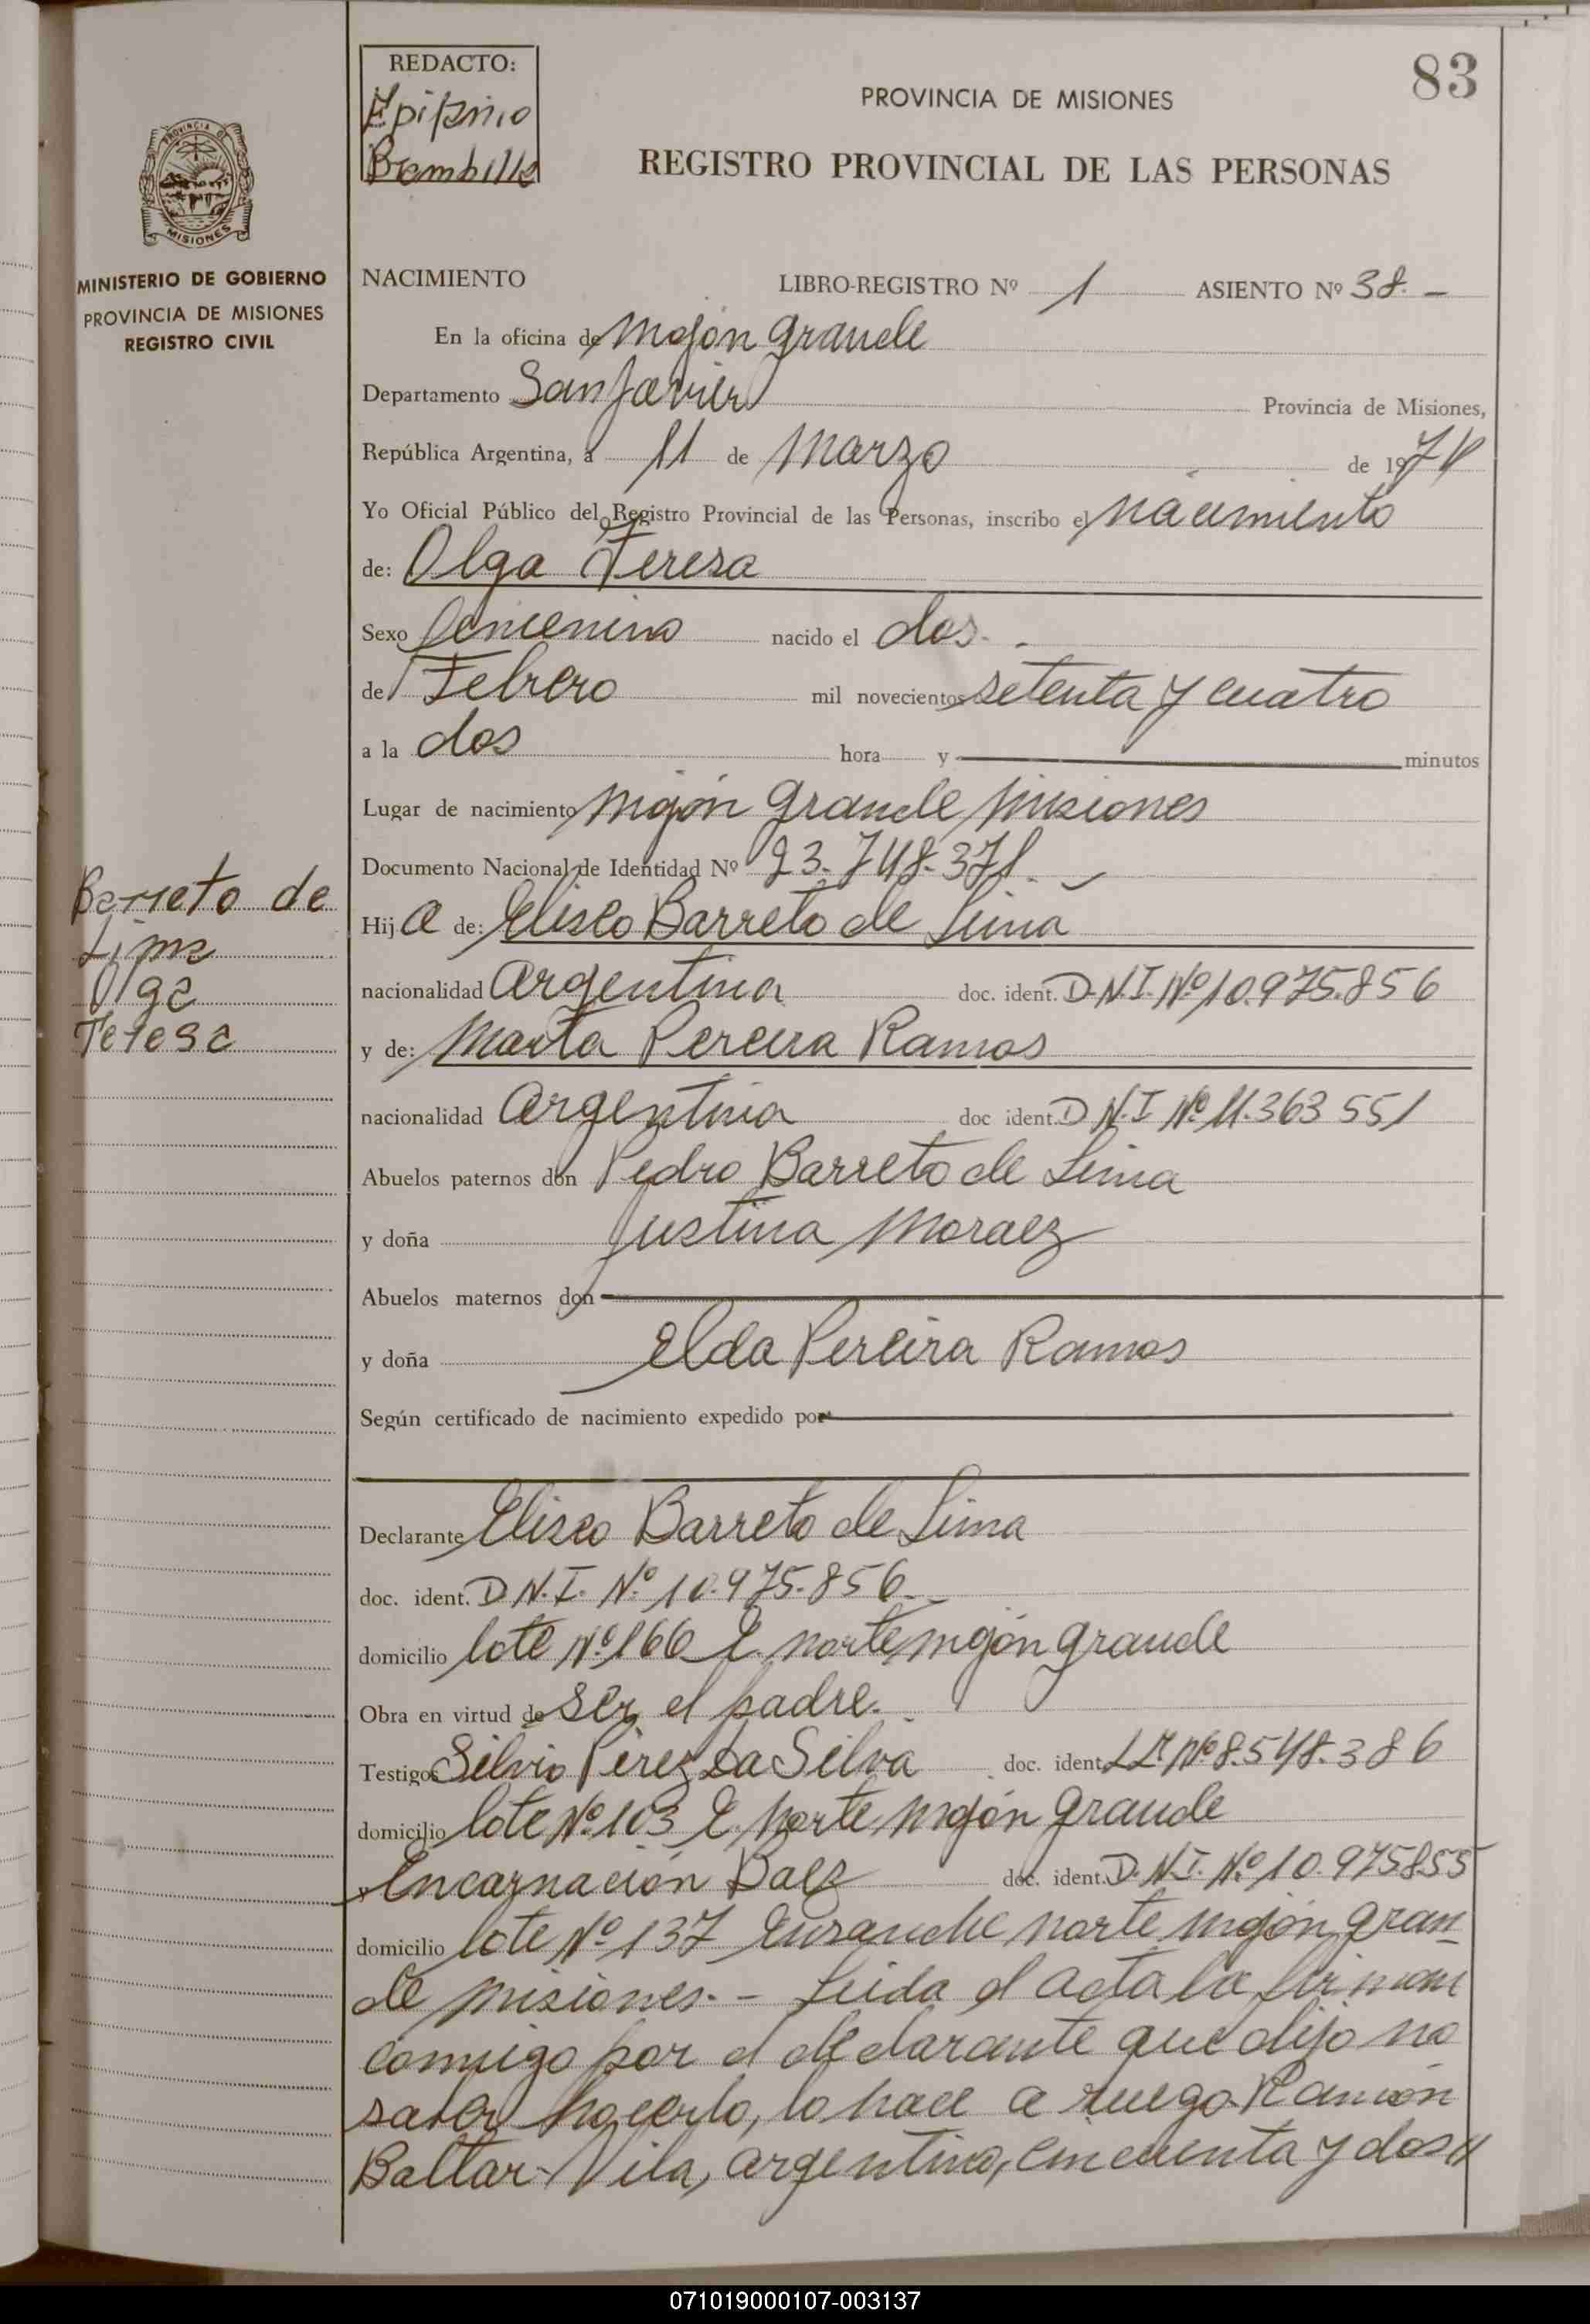 83
REDACTO:
Epifanio
Brambilla
PROVINCIA DE MISIONES
REGISTRO PROVINCIAL DE LAS PERSONAS
PROVINCIA DE
MISIONES
MINISTERIO DE GOBIERNO
PROVINCIA DE MISIONES
REGISTRO CIVIL
NACIMIENTO LIBRO-REGISTRO Nº 1 ASIENTO Nº 38. -
En la oficina de Mojón grande
Departamento San Javier Provincia de Misiones,
República Argentina, a 11 de Marzo de 1974
Yo Oficial Público del Registro Provincial de las Personas, inscribo el nacimiento
de: Olga Teresa
Sexo femenino nacido el dos. -
de Febrero mil novecientos setenta y cuatro
a la dos hora y minutos
Lugar de nacimiento Mojón grande Misiones
Documento Nacional de Identidad Nº 23.748.371.
Barreto de
Lima
Olga
Teresa
Hij a de: Eliseo Barreto de Lima
nacionalidad Argentina doc. ident. D.N.I. Nº 10.975.856
y de: Marta Pereira Ramos
nacionalidad Argentina doc ident. D N.I Nº 11.363 551
Abuelos paternos don Pedro Barreto de Lima
y doña Justina Moraez
Abuelos maternos don
y doña Elda Pereira Ramos
Según certificado de nacimiento expedido por
Declarante Eliseo Barreto de Lima
doc. ident. D.N.I. Nº 10.975.856.
domicilio lote Nº 166 E. norte Mojón grande
Obra en virtud de ser el padre.
Testigos Silvio Pérez Da Silva doc. ident. Nº 8.548.386
domicilio lote Nº 103 E. norte Mojón grande
y Encarnación Baez doc. ident. D.N.I. Nº 10.975855
domicilio lote Nº 137 Ensanche norte Mojón gran
de Misiones. - Leida el acta la firman
conmigo por el declarante que dijo no
saber hacerlo, lo hace a ruego Ramón
Baltar Vila, argentino, cincuenta y dos //
071019000107-003137